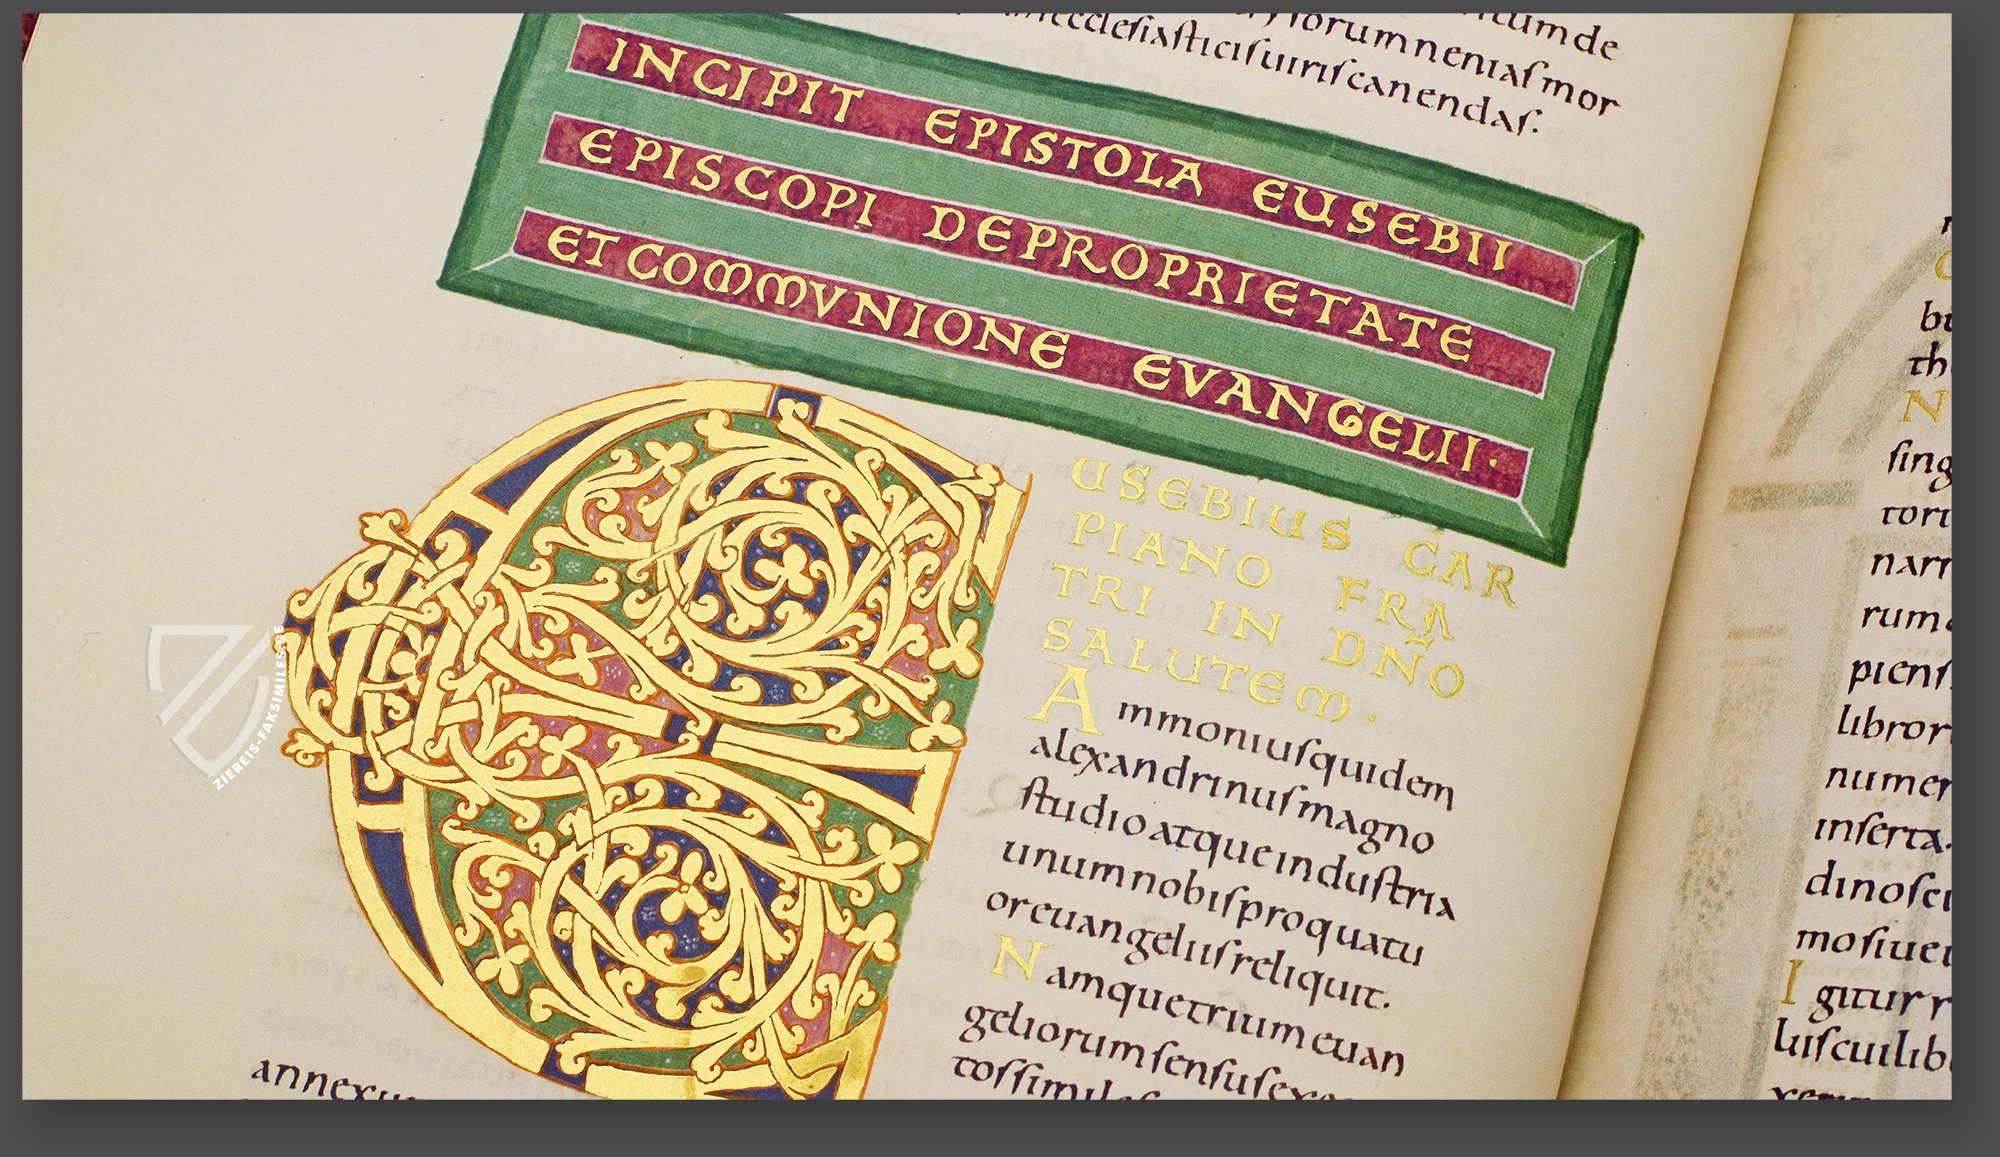 tumde
rumnenias mor
inecclesiasticis uiris canendas.
INCIPIT EPISTOLA EUSEBII
EPISCOPI DEPROPRIETATE
ET COMMVNIONE EVANGELII·
USEBIUS CAR
PIANO FRA
TRI IN DÑO
SALUTEM·
Ammonius quidem
alexandrinus magno
studio atque industria
unum nobis pro quatu
or euangeliis reliquit.
Namque trium euan
geliorum sensus exc
tos simil
annexu
bu
th
N
sing
tort
narr
rum
piens
libror
numer
inserta.
dinosci
mosiuei
Igitur r
luis cui lib
ZIEREIS-FAKSIMILES.DE